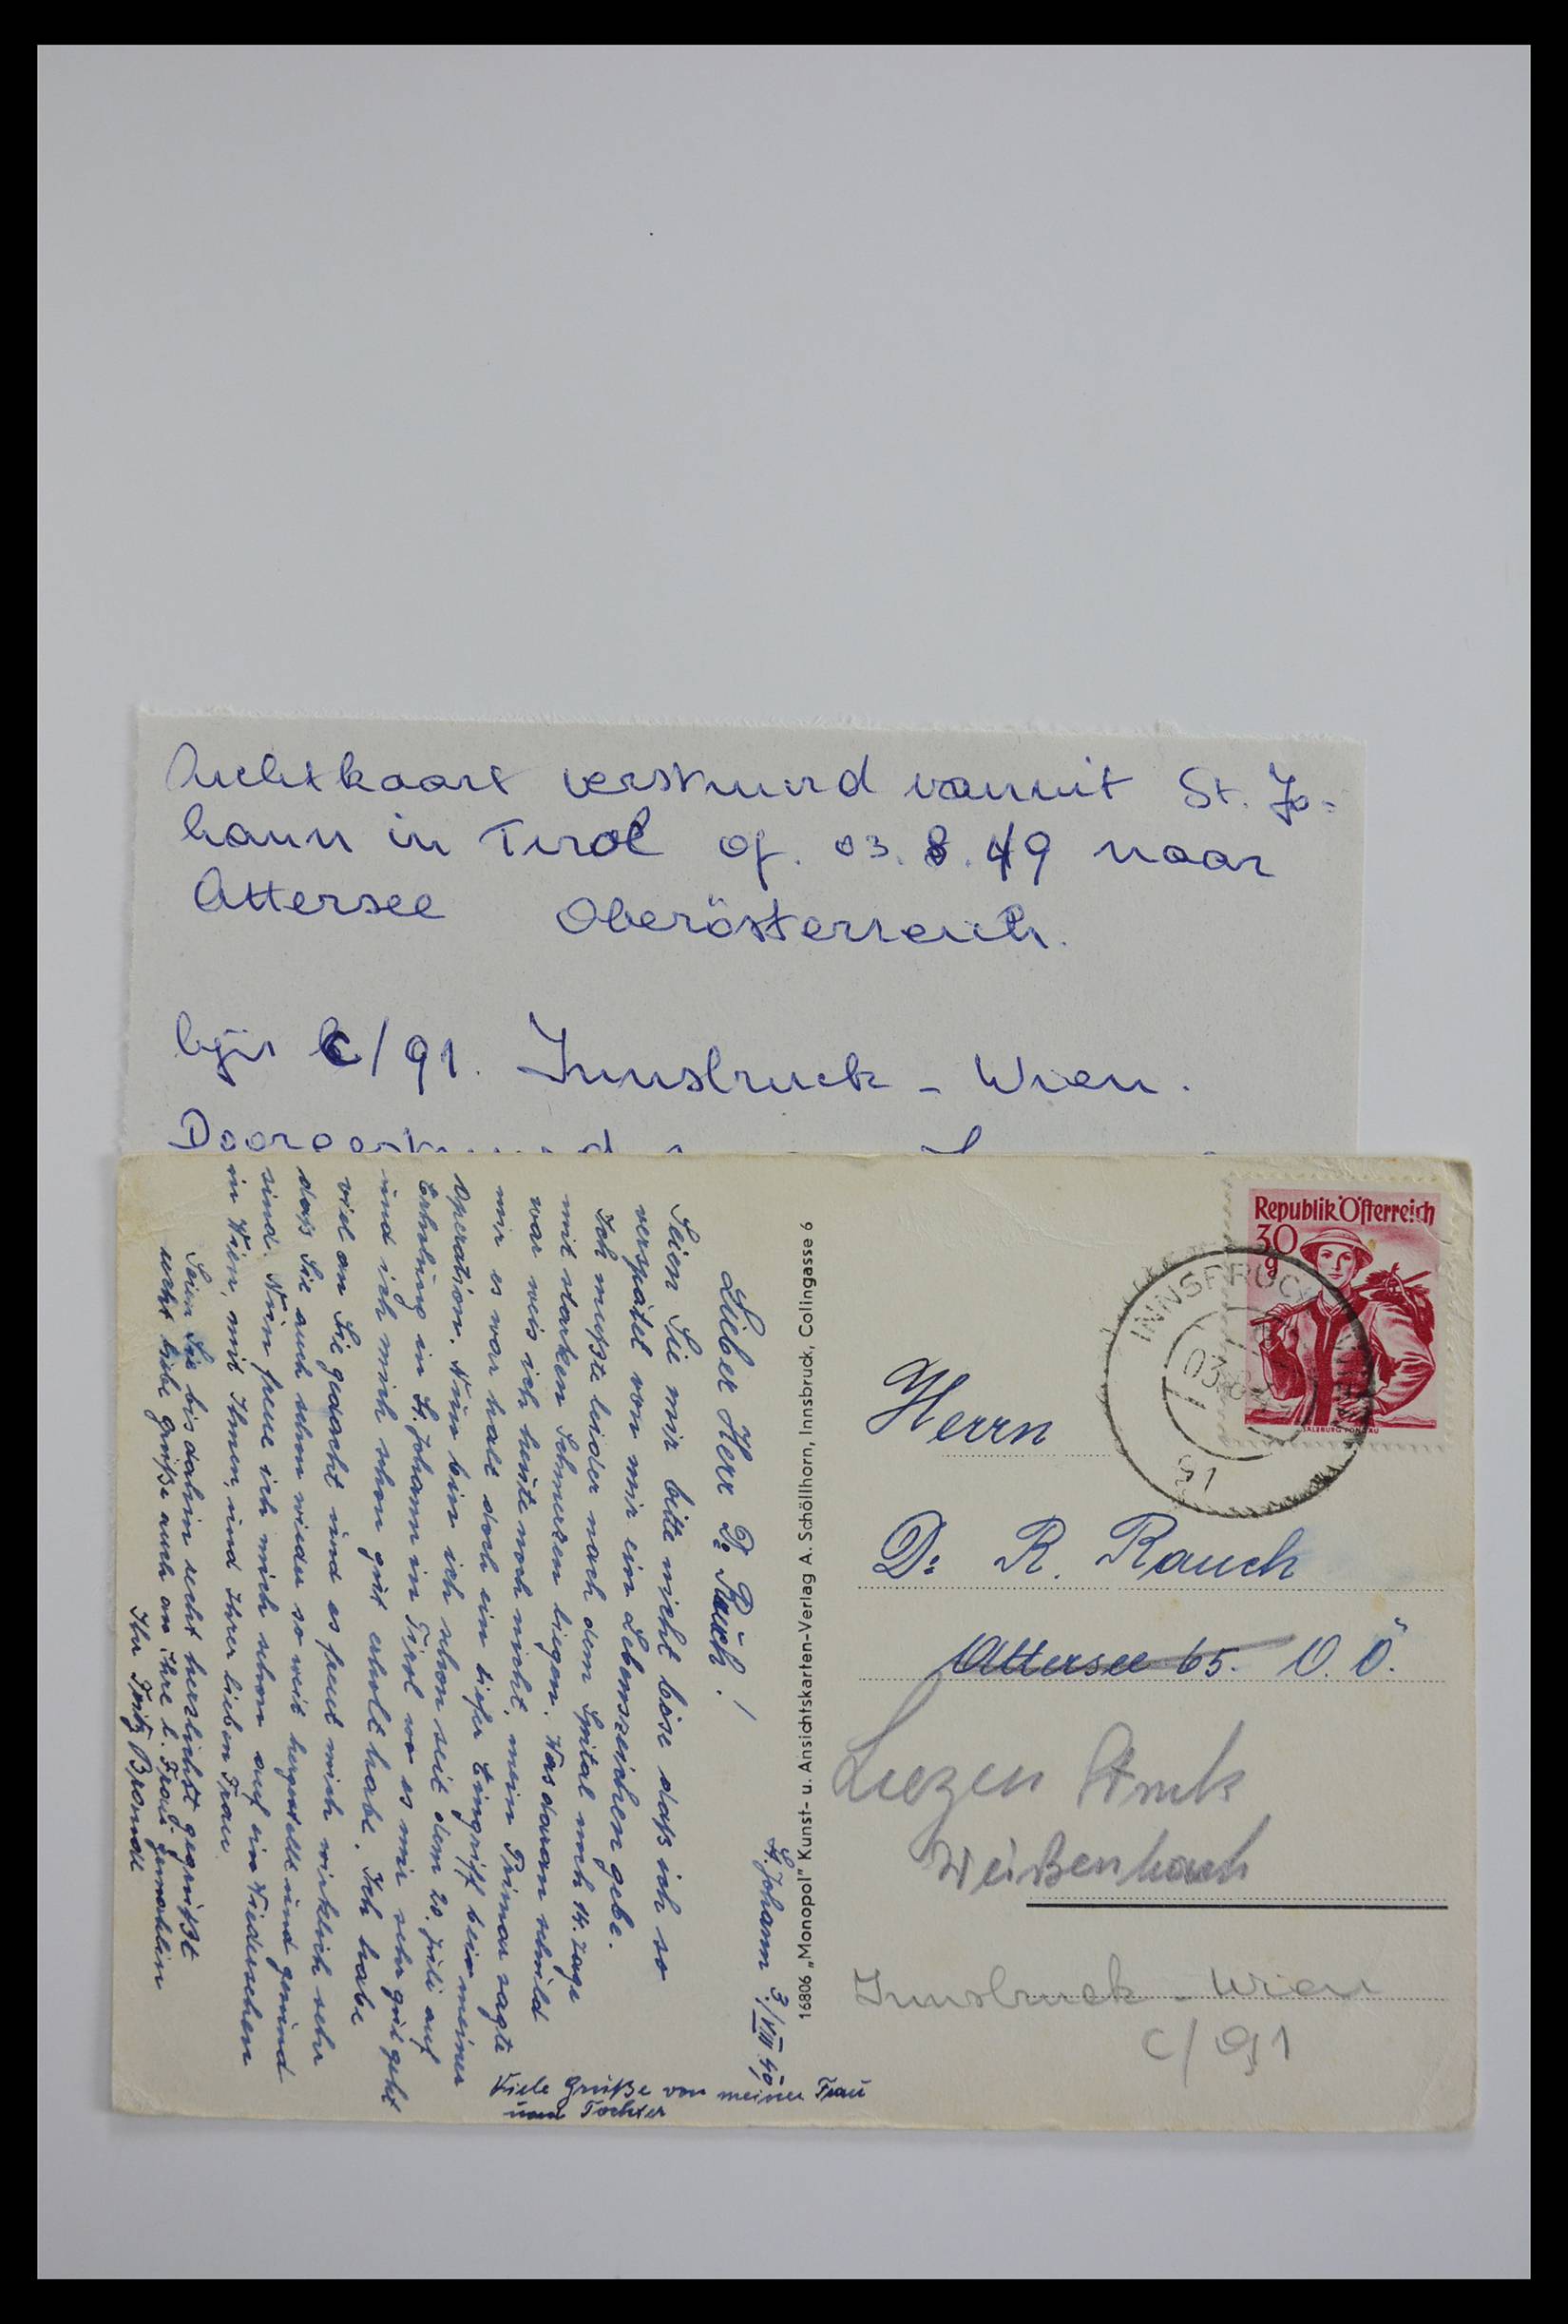 Zichtkaart verstuurd vanuit St. Jo=
hann in Tirol op. 03.8.49 naar
Attersee Oberösterreich.
lijn C/91. Innsbruck - Wien.
Republik Österreich
30
g
SALZBURG PONGAU
INNSBRUCK
03.8
91
Herrn
Dr R. Rauch
Attersee 65. O.Ö.
Liezen
Weißenbach
Innsbruck - Wien
C/91
16806 „Monopol" Kunst- u. Ansichtskarten-Verlag A. Schöllhorn, Innsbruck, Colingasse 6
St. Johann 3./VIII 49.
Lieber Herr Dr Rauch!
Seien Sie mir bitte nicht böse daß ich so
verspätet von mir ein Lebenszeichen gebe.
Ich mußte leider nach dem Spital noch 14. Tage
mit starken Schmerzen liegen. Was daran schuld
war weis ich heute noch nicht, mein Primar sagte
mir es war halt doch ein tiefer Eingriff bei meiner
Operation. Nun bin ich schon seit dem 20. Juli auf
Erholung in St. Johann in Tirol wo es mir sehr gut geht
und ich mich schon gut erholt habe. Ich habe
viel an Sie gedacht und es freut mich wirklich sehr
daß Sie auch schon wieder so weit hergestellt und gesund
sind. Nun freue ich mich schon auf ein Wiedersehen
in Wien, mit Ihnen und Ihrer lieben Frau.
Seien Sie bis dahin recht herzlichst gegrüßt
recht liebe Grüße auch an Ihre l. Frau Gemahlin
Ihr Fritz
Viele Grüße von meiner Frau
und Tochter